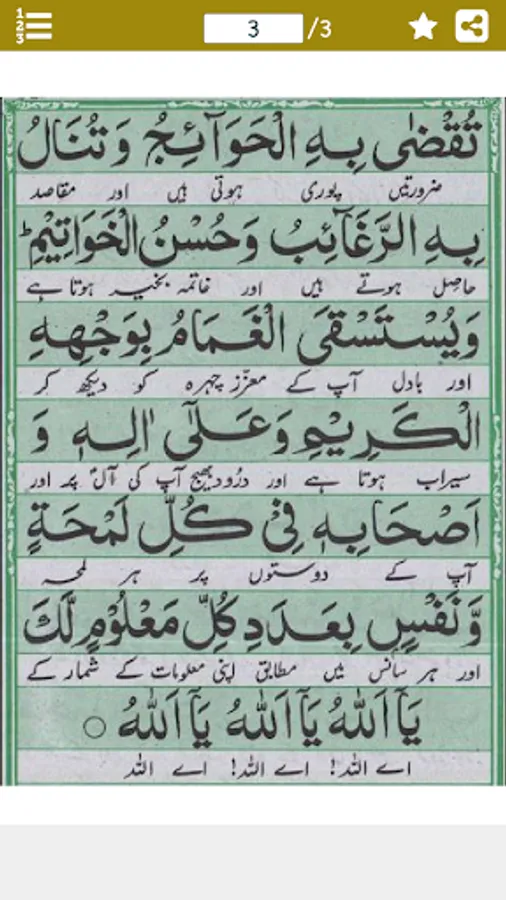 1 2 3
3 /3
تُقْضٰی بِهِ الْحَوَآئِجُ وَ تُنَالُ
ضرورتیں پوری ہوتی ہیں اور مقاصد
بِهِ الرَّغَآئِبُ وَحُسْنُ الْخَوَاتِيْمِ ؕ
حاصل ہوتے ہیں اور خاتمہ بخیر ہوتا ہے
وَيُسْتَسْقَی الْغَمَامُ بِوَجْهِهِ
اور بادل آپ کے معزّز چہرہ کو دیکھ کر
الْكَرِيْمِ وَعَلٰٓی اٰلِهٖ وَ
سیراب ہوتا ہے اور درُود بھیج آپ کی آلؑ پر اور
اَصْحَابِهٖ فِیْ كُلِّ لَمْحَةٍ
آپ کے دوستوں پر ہر لمحہ
وَّنَفَسٍ بِعَدَدِ كُلِّ مَعْلُوْمٍ لَّكَ
اور ہر سانس میں مطابق اپنی معلومات کے شمار کے
يَآ اَللّٰهُ يَآ اَللّٰهُ يَآ اَللّٰهُ ○
اے اللہ! اے اللہ! اے اللہ